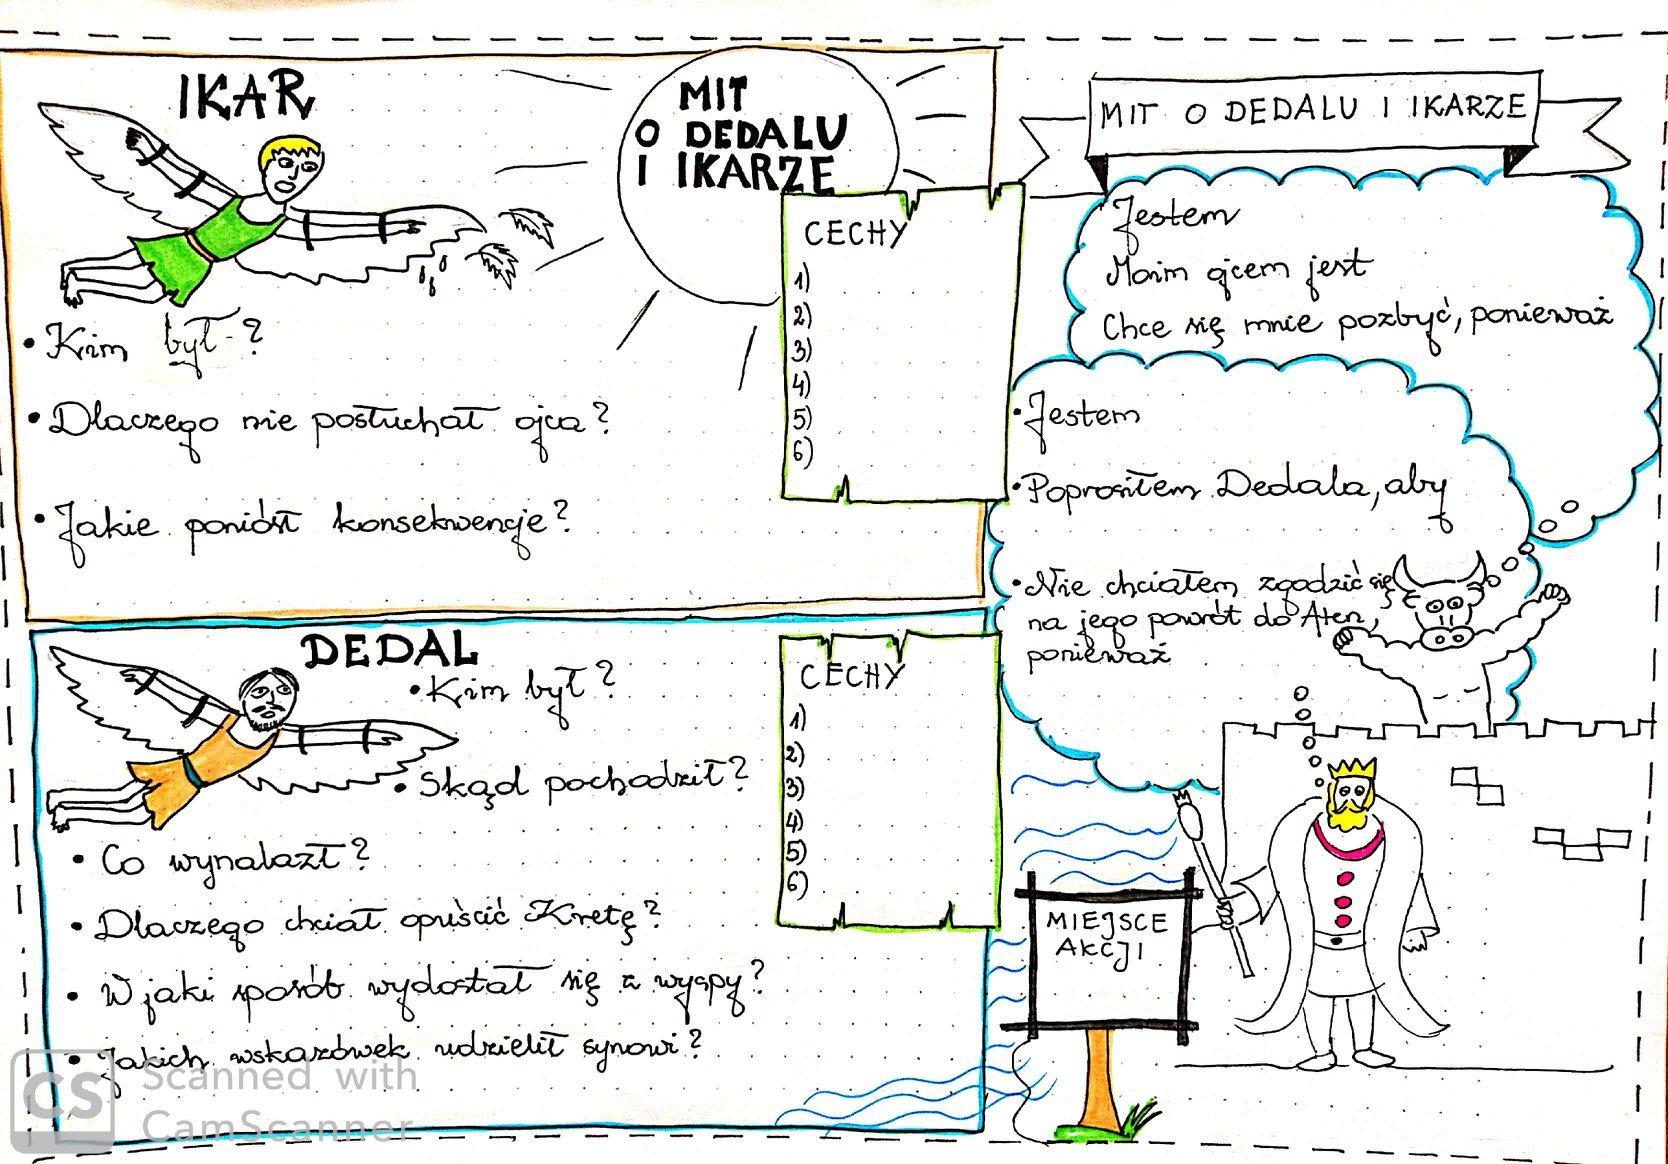 IKAR
MIT
O DEDALU
I IKARZE
• Kim był?
• Dlaczego nie posłuchał ojca?
• Jakie poniósł konsekwencje?
CECHY
1)
2)
3)
4)
5)
6)
DEDAL
• Kim był?
• Skąd pochodził?
• Co wynalazł?
• Dlaczego chciał opuścić Kretę?
• W jaki sposób wydostał się z wyspy?
• Jakich wskazówek udzielił synowi?
CECHY
1)
2)
3)
4)
5)
6)
MIT O DEDALU I IKARZE
Jestem
Moim ojcem jest
Chce się mnie pozbyć, ponieważ
• Jestem
• Poprosiłem Dedala, aby
• Nie chciałem zgodzić się
na jego powrót do Aten,
ponieważ
MIEJSCE
AKCJI
CS
Scanned with
CamScanner